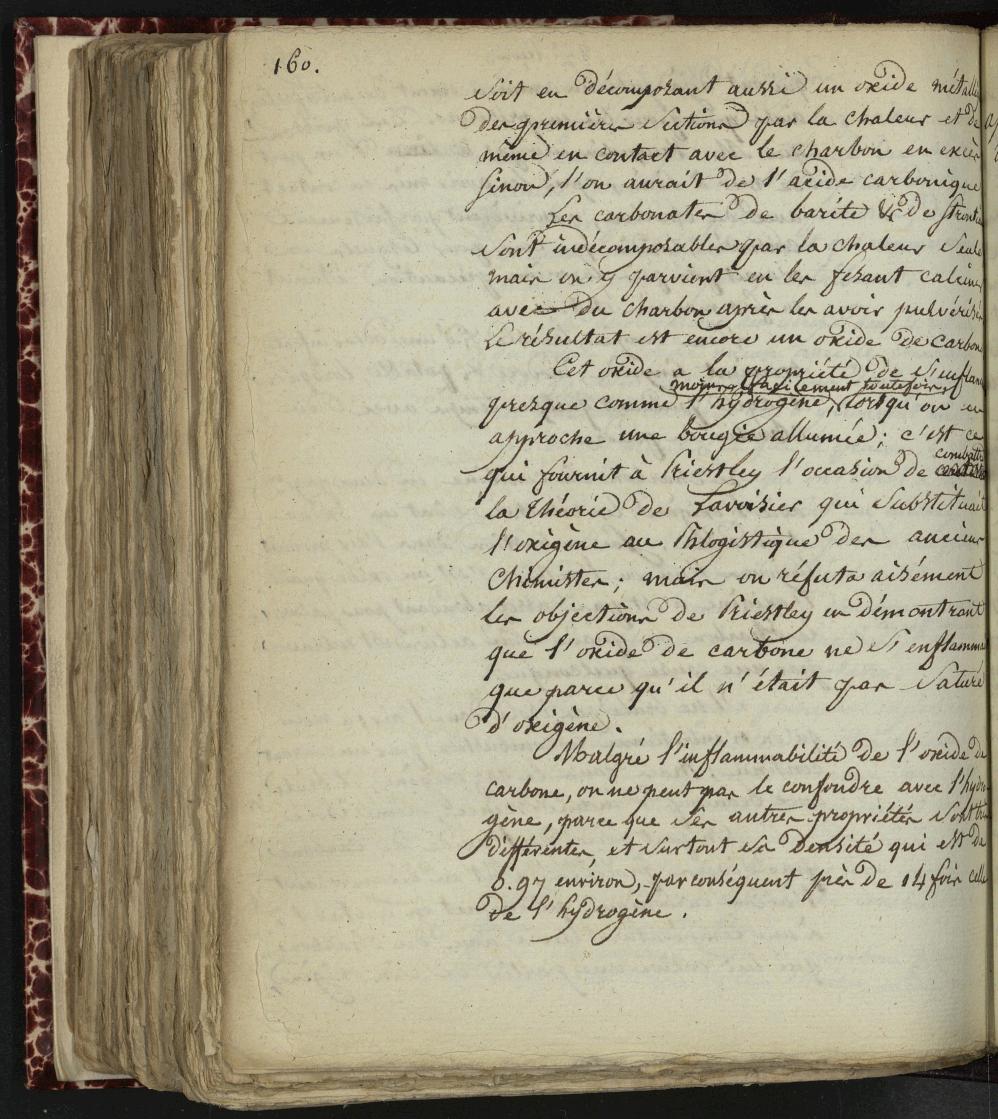 160.
soit en décomposant aussi un oxide métalli
des premières sections par la chaleur et de
même en contact avec le charbon en excès
sinon, l'on aurait de l'acide carbonique
Les carbonates de barite & de stronti
sont indécomposables par la chaleur seule
mais on y parvient en les fesant calciner
avec du charbon après les avoir pulvérisés
Le résultat est encore un oxide de carbon
Cet oxide a la propriété de s'enflam
moins facilement toutefois,
presque comme l'hydrogène, lorsqu'on en
approche une bougie allumée ; c'est ce
combattre
qui fournit à Priestley l'occasion de
la théorie de Lavoisier qui substituait
l'oxigène au Phlogistique des anciens
Chimistes ; mais on réfuta aisément
les objections de Priestley en démontrant
que l'oxide de carbone ne s'enflamme
que parce qu'il n'était pas saturé
d'oxigène.
Malgré l'inflammabilité de l'oxide de
carbone, on ne peut pas le confondre avec l'hydro
gène, parce que ses autres propriétés sont trè
différentes, et surtout sa densité qui est de
0.97 environ, par conséquent près de 14 fois celle
de l'hydrogène.